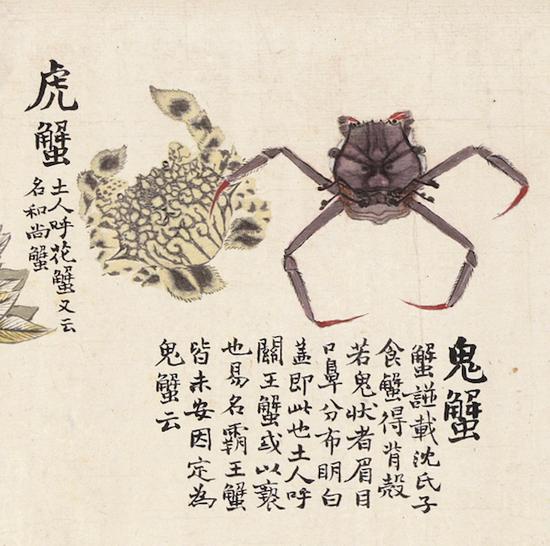 鬼蟹
蟹譜載沈氏子
食蟹得背殼
若鬼狀者眉目
口鼻分布明白
蓋即此也土人呼
關王蟹或以褻
也易名霸王蟹
皆未安因定為
鬼蟹云
虎蟹
土人呼花蟹又云
名和尚蟹